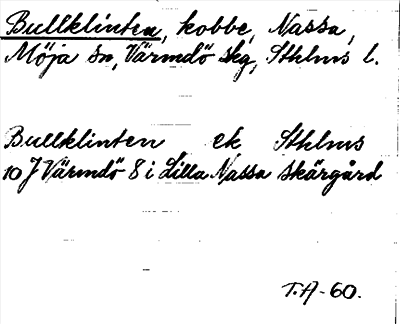 Bullklinten, kobbe, Nassa,
Möja sn, Värmdö skg, Sthlms l.
Bullklinten ek Sthlms
10 J Värmdö 8 i Lilla Nassa skärgård
T.A-60.